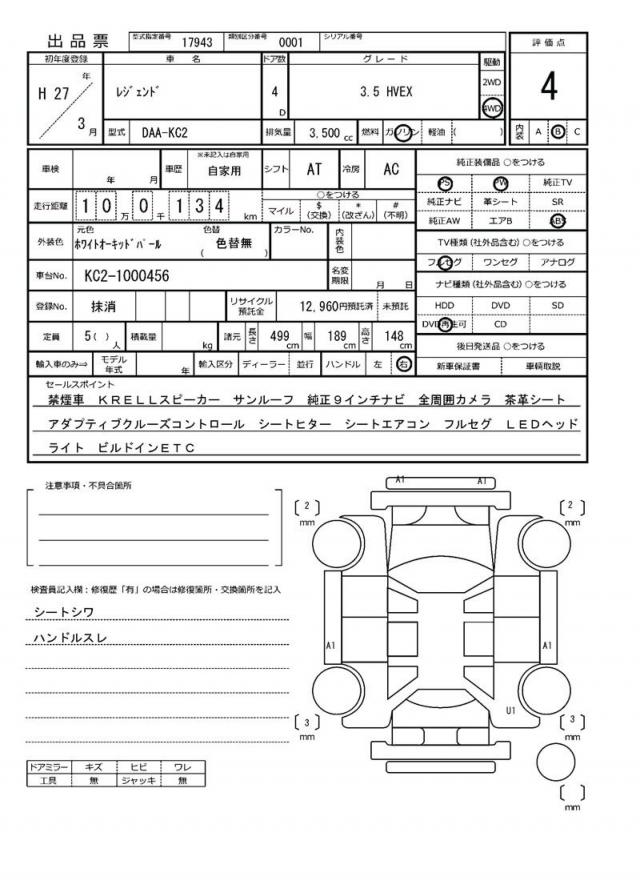 出品票 型式指定番号 17943 類別区分番号 0001 シリアル番号
評価点
4
内装 A B C
初年度登録 車名 ドア数 グレード 駆動
H 27 年 3 月 レジェンド 4 D 3.5 HVEX 2WD 4WD
型式 DAA-KC2 排気量 3,500 cc 燃料 ガソリン 軽油 ( )
車検 年 月 車歴 ※未記入は自家用 自家用 シフト AT 冷房 AC
走行距離 1 0 万 0 千 1 3 4 km
○をつける
マイル $ (交換) * (改ざん) # (不明)
外装色 元色 ホワイトオーキッドパール 色替 ( 色替無 ) カラーNo. 内装色
車台No. KC2-1000456 名変期限 月 日
登録No. 抹消 リサイクル預託金 12,960円預託済 未預託
定員 5( ) 人 積載量 kg 諸元 長さ 499 cm 幅 189 cm 高さ 148 cm
輸入車のみ⇒ モデル年式 年 輸入区分 ディーラー 並行 ハンドル 左 右
純正装備品 ○をつける
PS PW 純正TV
純正ナビ 革シート SR
純正AW エアB ABS
TV種類(社外品含む)○をつける
フルセグ ワンセグ アナログ
ナビ種類(社外品含む)○をつける
HDD DVD SD
DVD再生可 CD
後日発送品 ○をつける
新車保証書 車輌取説
セールスポイント
禁煙車 KRELLスピーカー サンルーフ 純正9インチナビ 全周囲カメラ 茶革シート
アダプティブクルーズコントロール シートヒター シートエアコン フルセグ LEDヘッド
ライト ビルドインETC
注意事項・不具合箇所
検査員記入欄:修復歴「有」の場合は修復箇所・交換箇所を記入
シートシワ
ハンドルスレ
ドアミラー キズ ヒビ ワレ
工具 無 ジャッキ 無
A1 A1
〔 2 〕 mm 〔 2 〕 mm
A1 A1
U1
〔 3 〕 mm 〔 3 〕 mm
〔 〕 mm